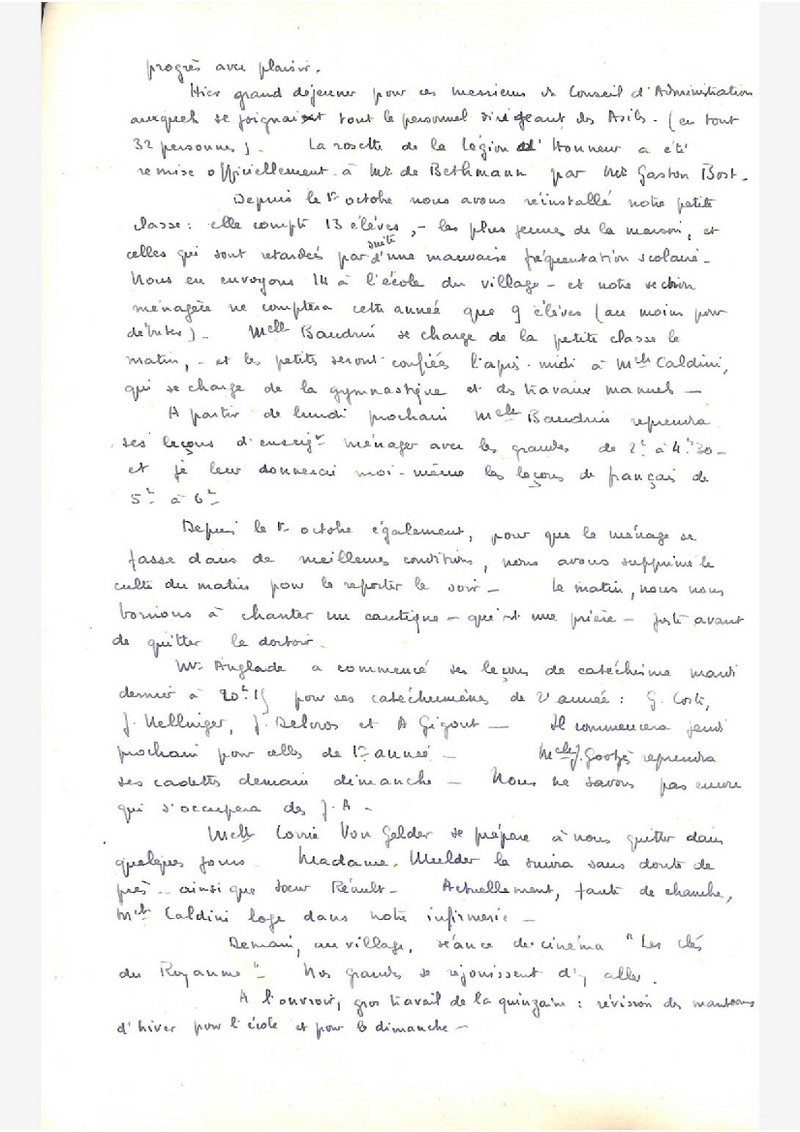 progrès avec plaisir.
Hier grand déjeuner pour ces messieurs du Conseil d'Administration
auxquels se joignait tout le personnel dirigeant des Asiles - (en tout
32 personnes). La rosette de la légion d'Honneur a été
remise officiellement à Mr. de Bethmann par Mr. Gaston Bost -
Depuis le 1er octobre nous avons réinstallé notre petite
classe : elle compte 13 élèves, - les plus jeunes de la maison, et
celles qui sont retardées par suite d'une mauvaise fréquentation scolaire -
Nous en envoyons 14 à l'école du village - et notre section
ménagère ne comptera cette année que 9 élèves (au moins pour
débuter) - Melle Baudrin se charge de la petite classe le
matin, - et les petits seront confiées l'après-midi à Melle Caldini,
qui se charge de la gymnastique et des travaux manuels -
A partir de lundi prochain Melle Baudrin reprendra
ses leçons d'enseigt ménager avec les grandes de 2h à 4h30 -
et je leur donnerai moi-même les leçons de français de
5h à 6h
Depuis le 1er octobre également, pour que le ménage se
fasse dans de meilleures conditions, nous avons supprimé le
culte du matin pour le reporter le soir - Le matin, nous nous
bornons à chanter un cantique - qui est une prière - juste avant
de quitter le dortoir.
Mr. Anglade a commencé ses leçons de catéchisme mardi
dernier à 20h15 pour ses catéchumènes de 2e année : G. Coste,
J. Nellniger, J. Delcros et A Gigout - Il commencera jeudi
prochain pour celles de 1re année - Melle J. reprendra
ses cadettes demain dimanche - Nous ne savons pas encore
qui s'occupera des J.A -
Melle Corrie Van Gelder se prépare à nous quitter dans
quelques jours - Madame Mulder la suivra sans doute de
près - ainsi que Soeur Réault - Actuellement, faute de chambre,
Melle Caldini loge dans notre infirmerie -
Demain, au village, séance de cinéma "Les clés
du Royaume" - Nos grandes se réjouissent d'y aller.
A l'ouvroir, gros travail de la quinzaine : révision des manteaux
d'hiver pour l'école et pour le dimanche -